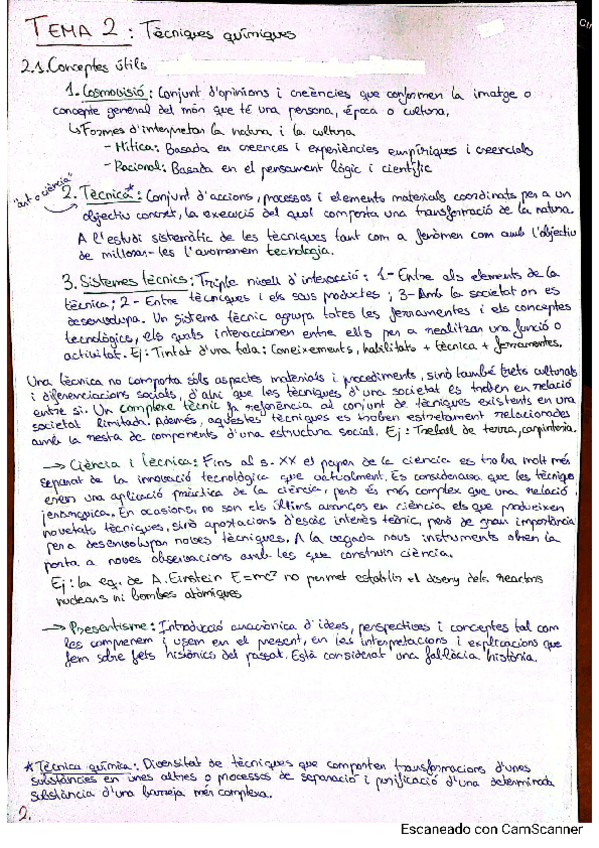 TEMA 2: Tècniques químiques
2.1. Conceptes útils
1. Cosmovisió: Conjunt d'opinions i creències que conformen la imatge o
concepte general del món que té una persona, època o cultura,
↳ Formes d'interpretar la natura i la cultura
- Mítica: Basada en creences i experiències empíriques i creencials
- Racional: Basada en el pensament lògic i científic
"art o ciència"
2. Tècnica*: Conjunt d'accions, processos i elements materials coordinats per a un
objectiu concret, la execució del qual comporta una transformació de la natura.
A l'estudi sistemàtic de les tècniques tant com a fenòmen com amb l'objectiu
de millorar-les l'anomenem tecnologia.
3. Sistemes tècnics: Triple nivell d'interacció: 1- Entre els elements de la
tècnica; 2- Entre tècniques i els seus productes; 3- Amb la societat on es
desenvolupa. Un sistema tècnic agrupa totes les ferramentes i els conceptes
tecnològics, els quals interaccionen entre ells per a realitzar una funció o
activitat. Ej: Tintat d'una tela: Coneixements, habilitats + tècnica + ferramentes.
Una tècnica no comporta sòls aspectes materials i procediments, sinó també trets culturals
i diferenciacions socials, d'ahí que les tècniques d'una societat es troben en relació
entre si. Un complexe tècnic fa referència al conjunt de tècniques existents en una
societat limitada. Además, aquestes tècniques es troben estretament relacionades
amb la resta de components d'una estructura social. Ej: Treball de terra, carpinteria.
→ Ciència i Tècnica: Fins al s. XX el paper de la ciència es troba molt més
separat de la innovació tecnològica que actualment. Es considerava que les tècniques
eren una aplicació pràctica de la ciència, però és més complex que una relació
jerarquica. En ocasions, no son els últims avanços en ciència els que produeixen
novetats tècniques, sinó aportacions d'escàs interès teòric, però de gran importància
per a desenvolupar noves tècniques. A la vegada nous instruments obren la
porta a noves observacions amb les que construir ciència.
Ej: la eq. de A. Einstein E=mc² no permet establir el diseny dels reactors
nuclears ni bombes atòmiques
→ Presentisme: Introducció anacrònica d'idees, perspectives i conceptes tal com
les comprenem i usem en el present, en les interpretacions i explicacions que
fem sobre fets històrics del passat. Està considerat una fal·làcia història.
* Tècnica química: Diversitat de tècniques que comporten transformacions d'unes
substàncies en unes altres o processos de separació i purificació d'una determinada
substància d'una barreja més complexa.
2.
Escaneado con CamScanner